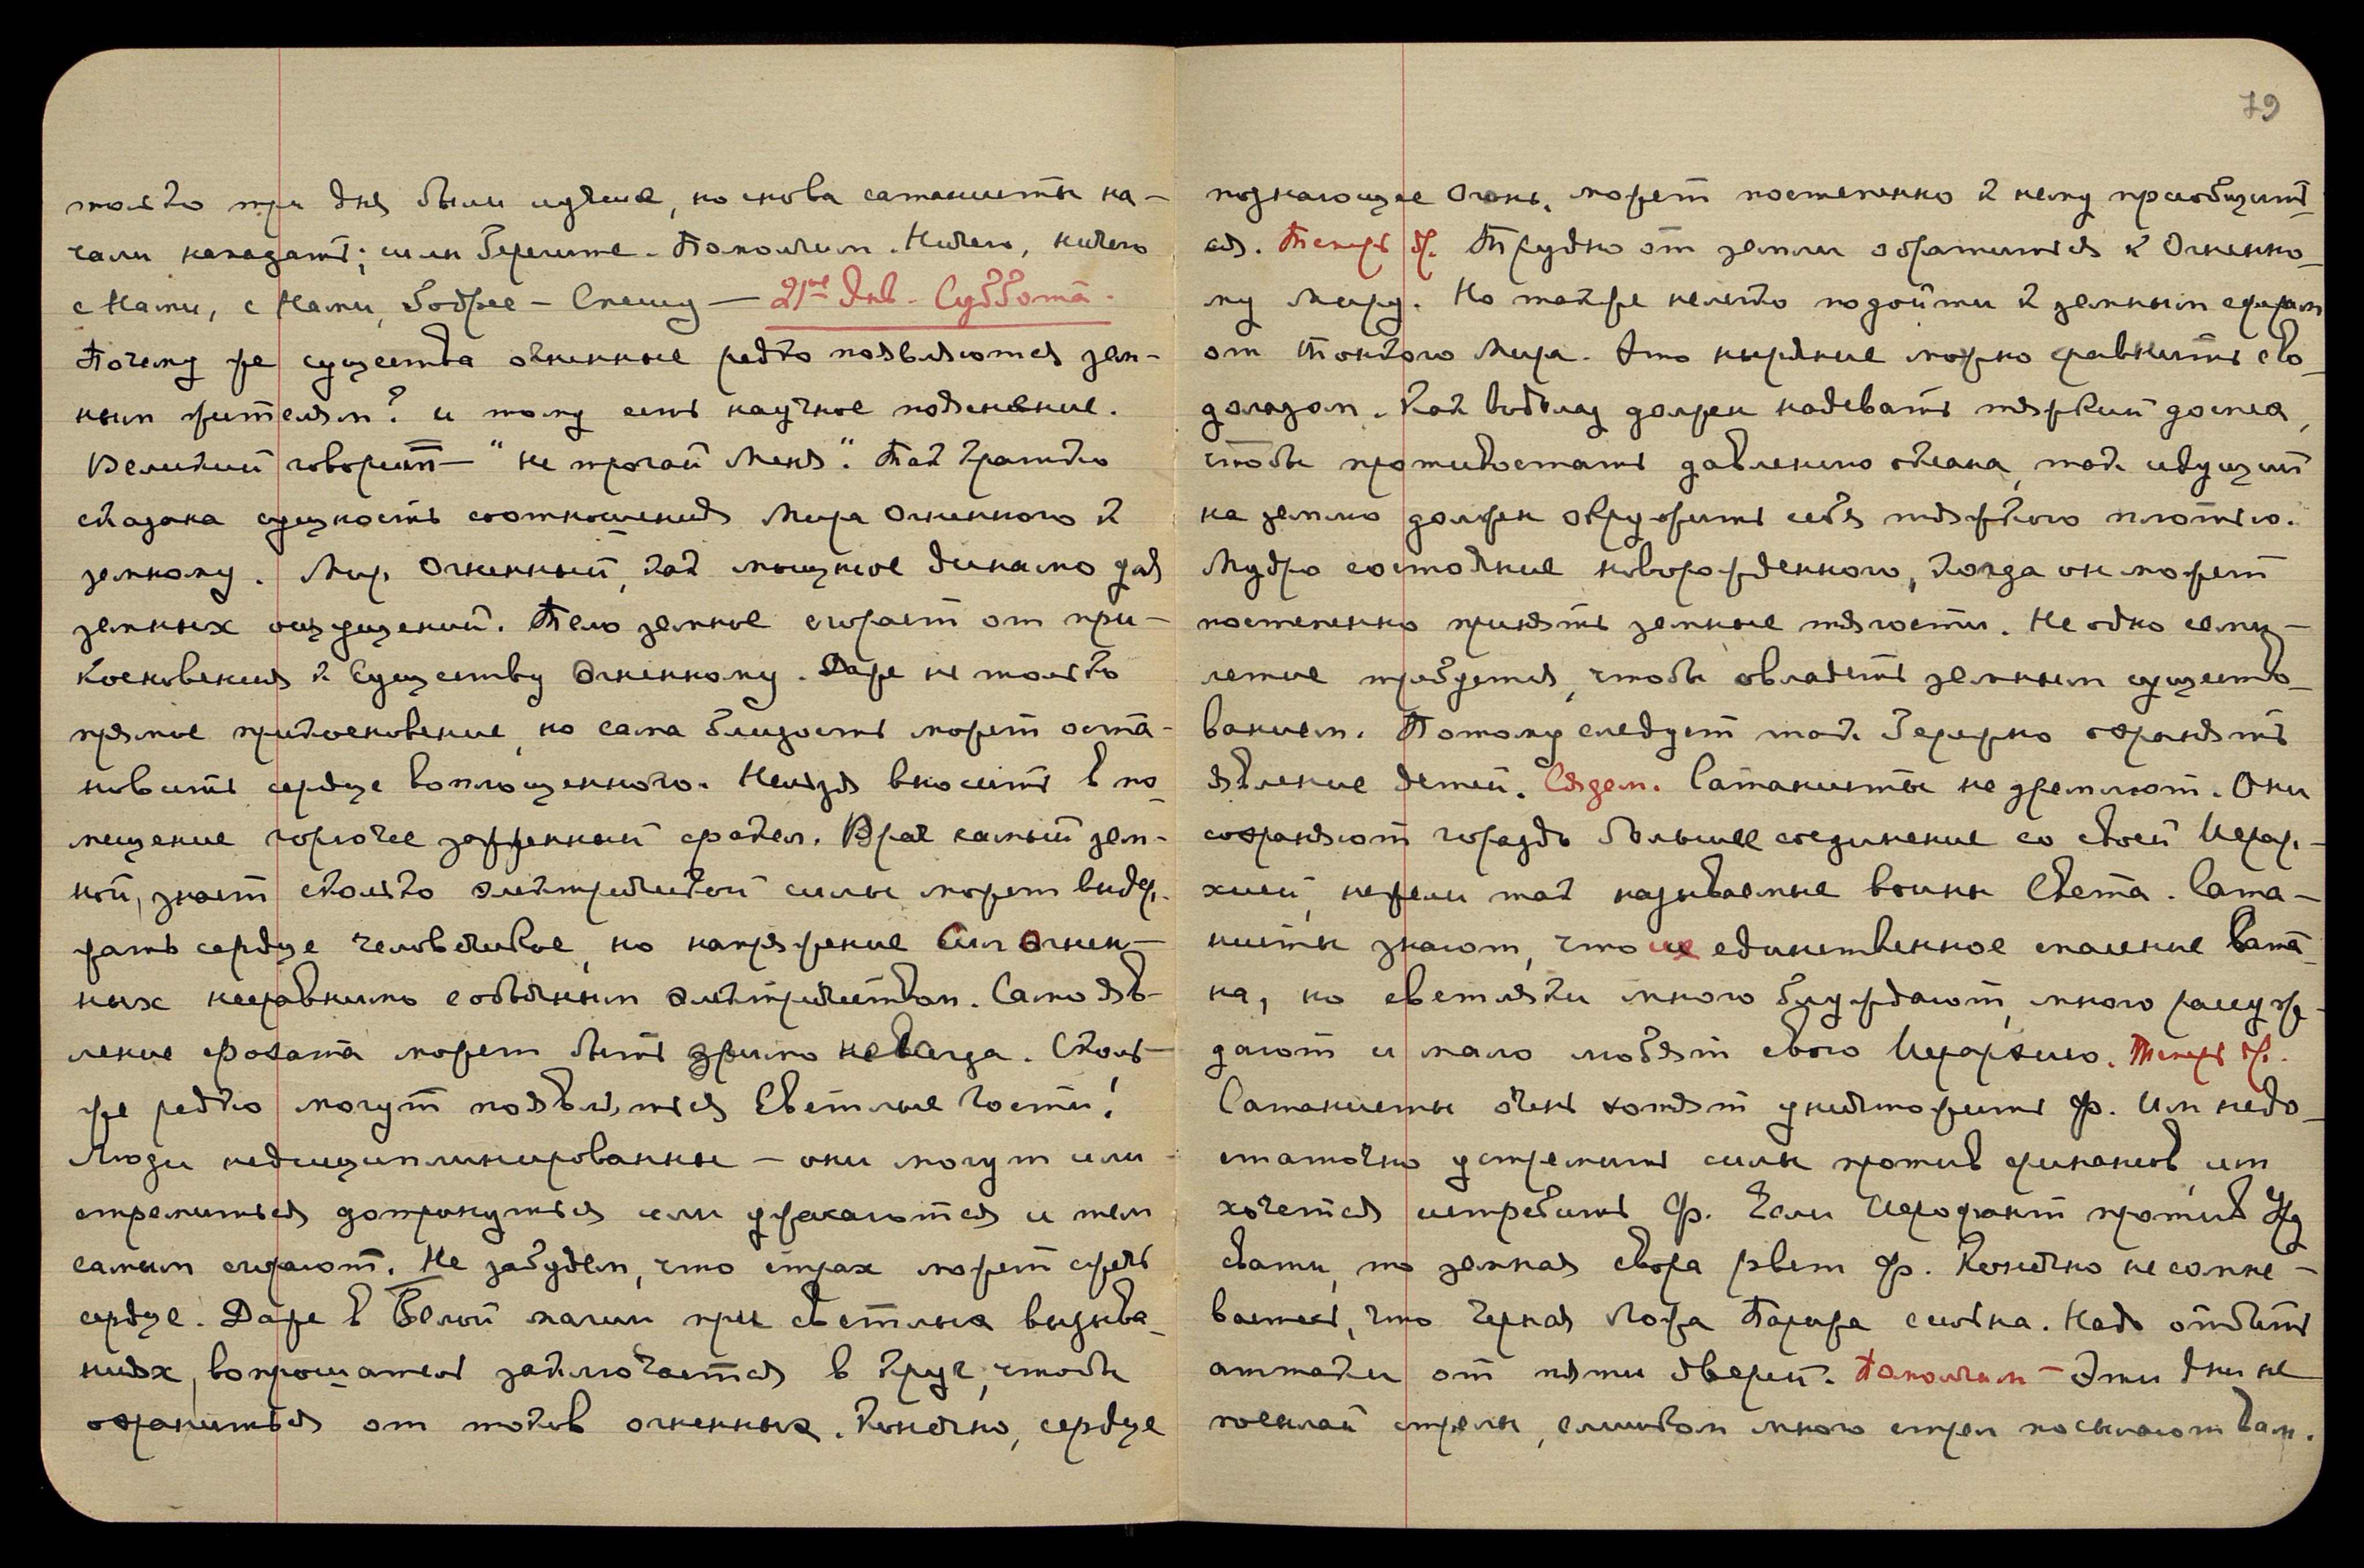 только три дня были лучше, но снова сатанисты на-
чали нападать; силы берегите. Помолчим. Ничего, ничего
с Нами, с Нами, бодрее – Спешу – 21ое Янв. Суббота.
Почему же существа огненные редко появляются зем-
ным жителям? и тому есть научное пояснение.
Великий говорит – "не трогай Меня". Так кратко
сказана сущность соотношения Мира Огненного к
земному. Мир Огненный, как мощное динамо для
земных ощущений. Тело земное сгорает от при-
косновения к Существу Огненному. Даже не только
прямое прикосновение, но сама близость может оста-
новить сердце воплощенного. Нельзя вносить в по-
мещение горючее зажженный факел. Врач самый зем-
ной, знает сколько электрической силы может выдер-
жать сердце человеческое, но напряжение Сил Огнен-
ных несравнимо с обычным электричеством. Само яв-
ление Фохата может быть зримо не всегда. Столь-
же редко могут появляться Светлые Гости!
Люди недисциплинированны – они могут или
стремиться дотронуться или ужасаются и тем
самым сгорают. Не забудем, что страх может сжечь
сердце. Даже в Белой магии при светлых вызыва-
ниях, вопрошатель заключается в круг, чтобы
охраниться от токов огненных. Конечно, сердце
79
познающее Огонь, может постепенно к нему приобщить-
ся. Теперь др. Трудно от земли обратиться к Огненно-
му Миру. Но также нелегко подойти к земным сферам
от Тонкого Мира. Это ныряние можно сравнить с во-
долазом. Как водолаз должен надевать тяжкий доспех,
чтобы противостать давлению океана, так идущий
на землю должен окружить себя тяжкою плотью.
Мудро состояние новорожденного, когда он может
постепенно принять земные тягости. Не одно семи-
летие требуется, чтобы овладеть земным существо-
ванием. Потому следует так бережно охранять
явление детей. Сядем. Сатанисты не дремлют. Они
сохраняют гораздо большее соединение со своей Иерар-
хией, нежели так называемые воины Света. Сата-
нисты знают, что их единственное спасение Сата-
на, но светляки много блуждают, много рассуж-
дают и мало любят свою Иерархию. Теперь др.
Сатанисты очень хотят уничтожить Ф. Им недо-
статочно устремить силы против финансов, им
хочется истребить Ф. Если Иерофант против
то земная свора рвет Ф. Конечно не сомне-
ваетесь, что Черная Ложа Парижа сильна. Надо отбить
атаки от пяти дверей. Помолчим – Эти дни не
посылай стрелы, слишком много стрел посылают вам.